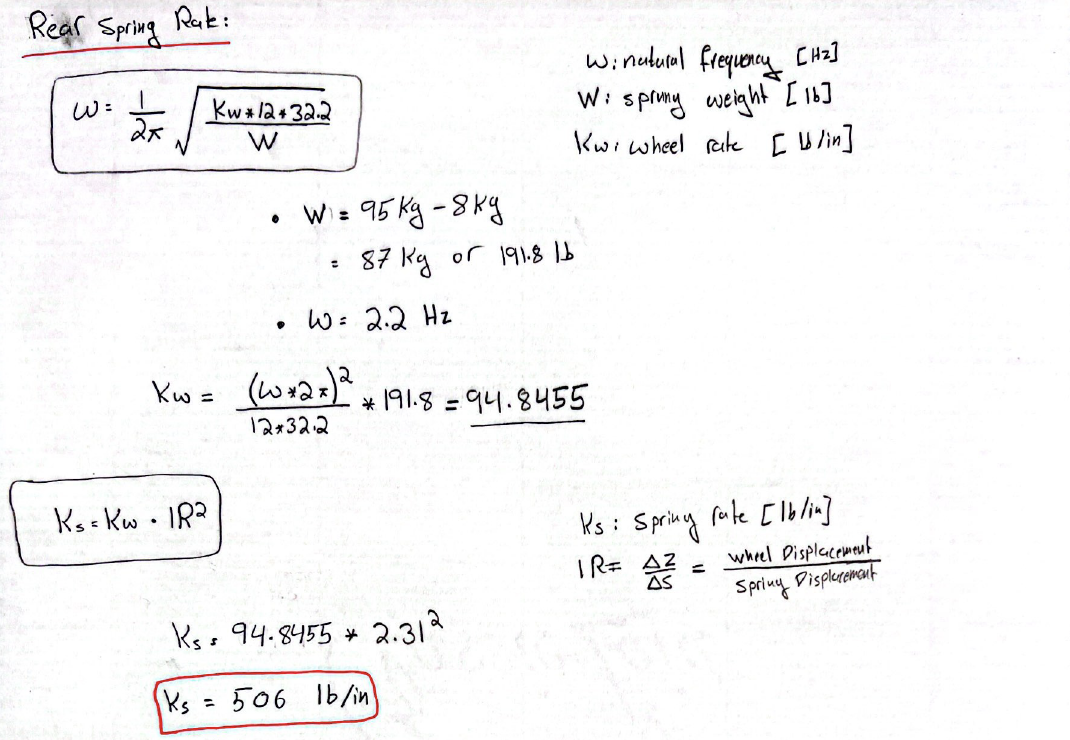 Rear Spring Rate:
ω = 1/2π √(Kw*12*32.2/W)
ω: natural frequency [Hz]
W: sprung weight [lb]
Kw: wheel rate [lb/in]
• W = 95 Kg - 8 Kg
= 87 Kg or 191.8 lb
• ω = 2.2 Hz
Kw = (ω*2π)²/12*32.2 * 191.8 = 94.8455
Ks = Kw · IR²
Ks: Spring rate [lb/in]
IR = ΔZ/ΔS = wheel Displacement/Spring Displacement
Ks = 94.8455 * 2.31²
Ks = 506 lb/in